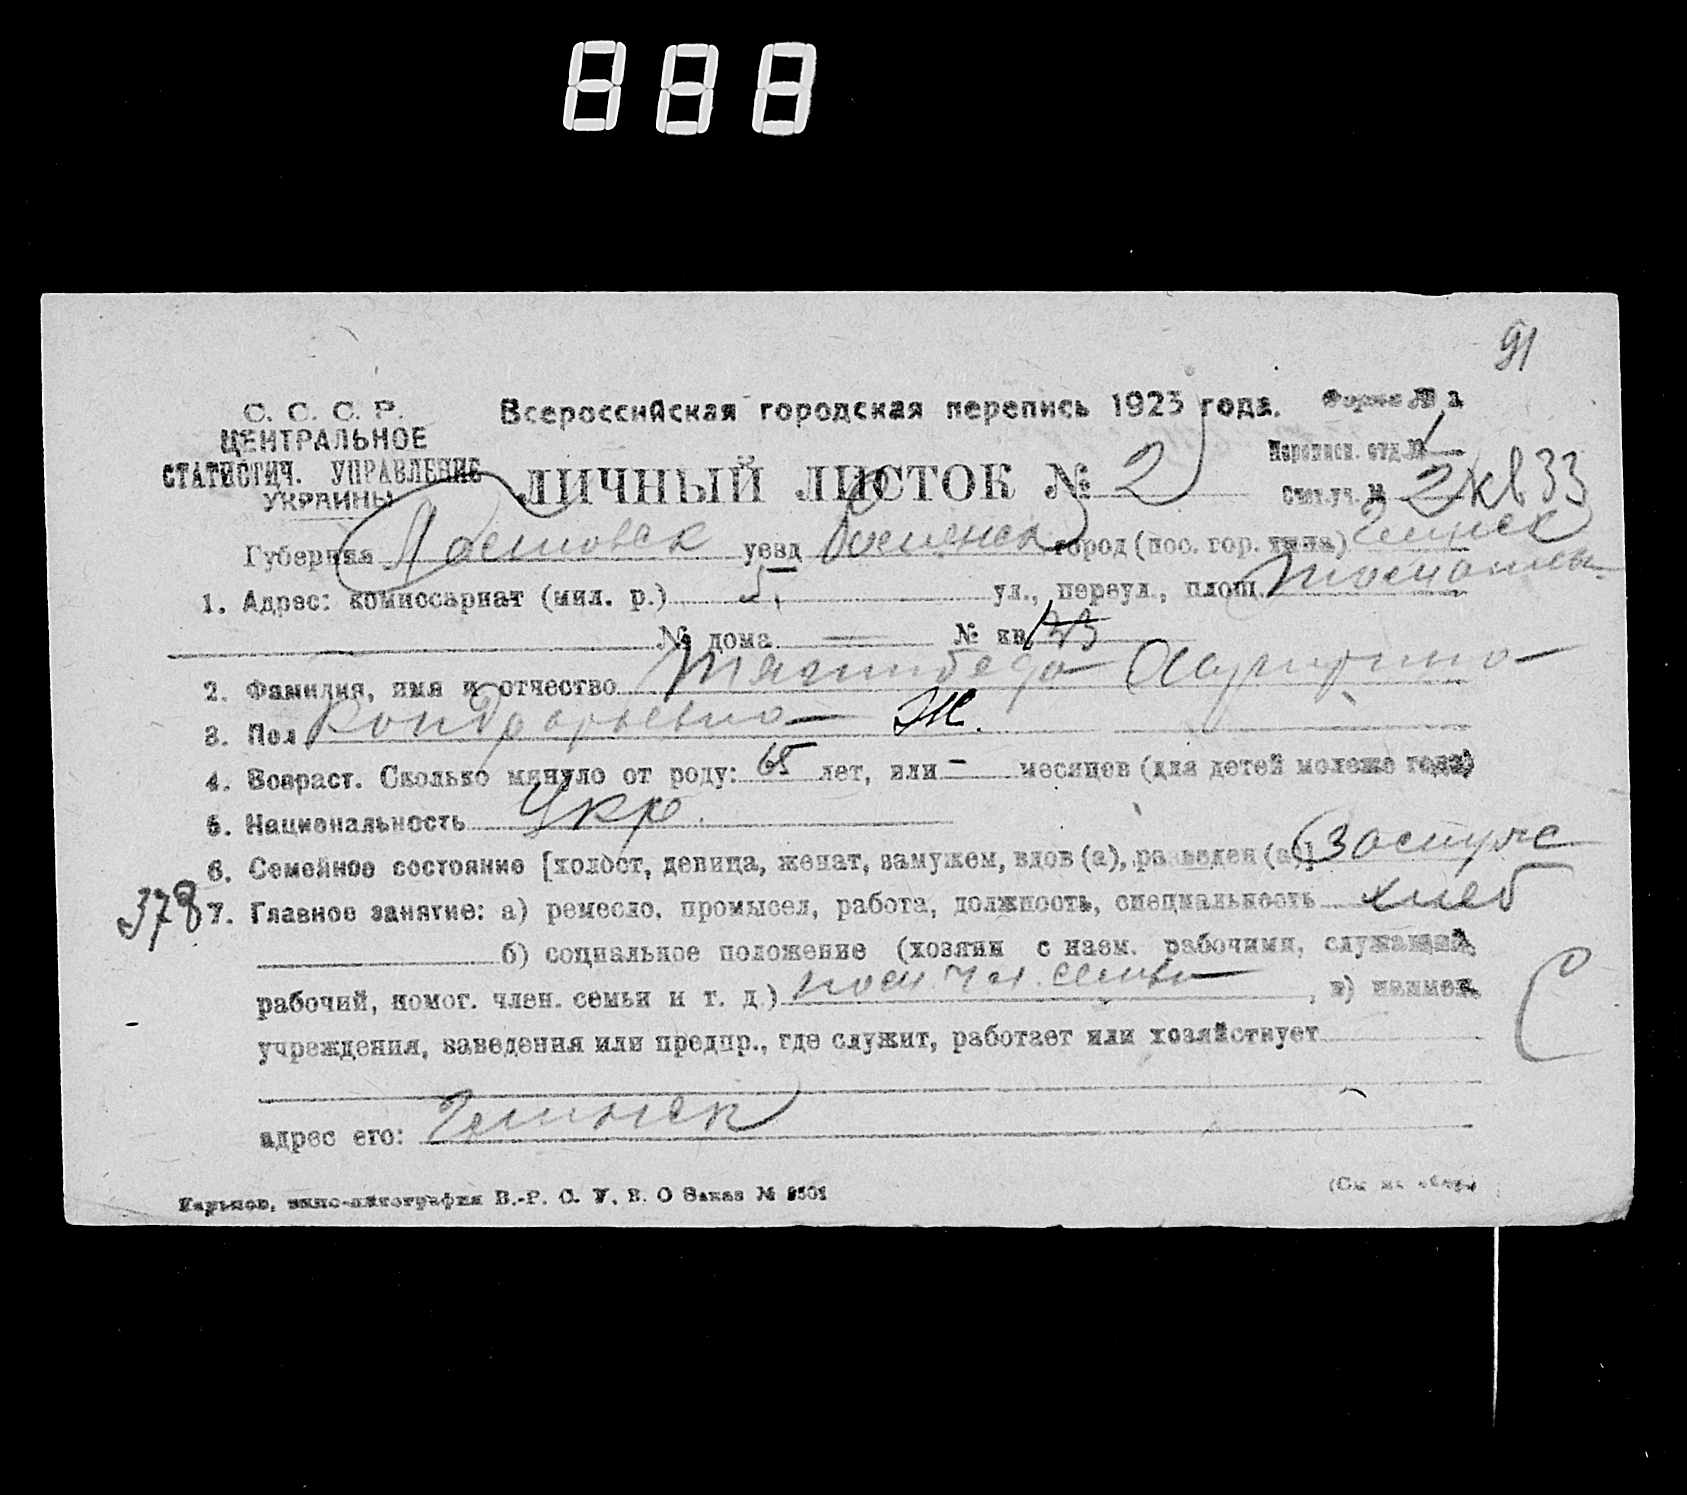 888
91
С. С. С. Р.
ЦЕНТРАЛЬНОЕ
СТАТИСТИЧ. УПРАВЛЕНИЕ
УКРАИНЫ
Всероссийская городская перепись 1923 года.
Форма № 2
ЛИЧНЫЙ ЛИСТОК № 2
Переписн. отд. №
Счет. уч. № 2 кв 33
Губерния уезд город (пос. гор. типа)
1. Адрес: комиссариат (мил. р.) 5, ул., переул., площ.
№ дома — № кв.
2. Фамилия, имя и отчество
3. Пол Кондратьевна Ж.
4. Возраст. Сколько минуло от роду: 65 лет, или – месяцев (для детей моложе года)
5. Национальность Укр.
6. Семейное состояние [холост, девица, женат, замужем, вдов (а), разведен (а)] замуже
378 7. Главное занятие: а) ремесло, промысел, работа, должность, специальность хлеб
б) социальное положение (хозяин с наем. рабочими, служащий,
рабочий, помог. член. семьи и т. д.) пом. чл. семьи, в) наимен.
учреждения, заведения или предпр., где служит, работает или хозяйствует
адрес его:
Харьков, типо-литография В.-Р. С. У. В. О Заказ №
(См. на обор.)